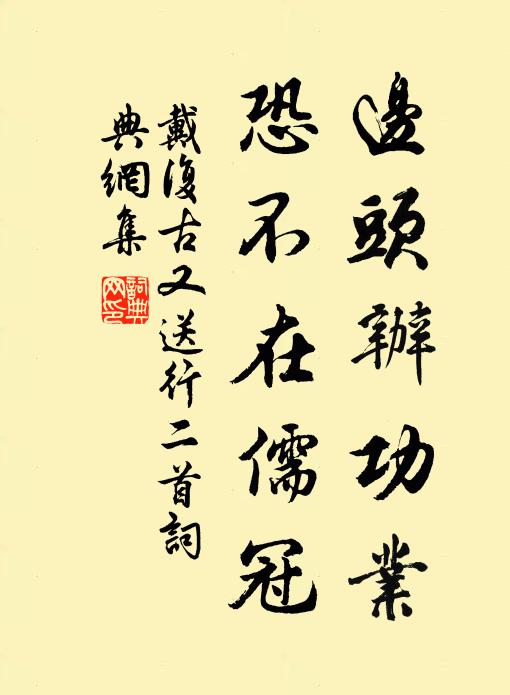 邊頭辦功業
恐不在儒冠
戴復古又送行二首詞
典網集
詞典網印